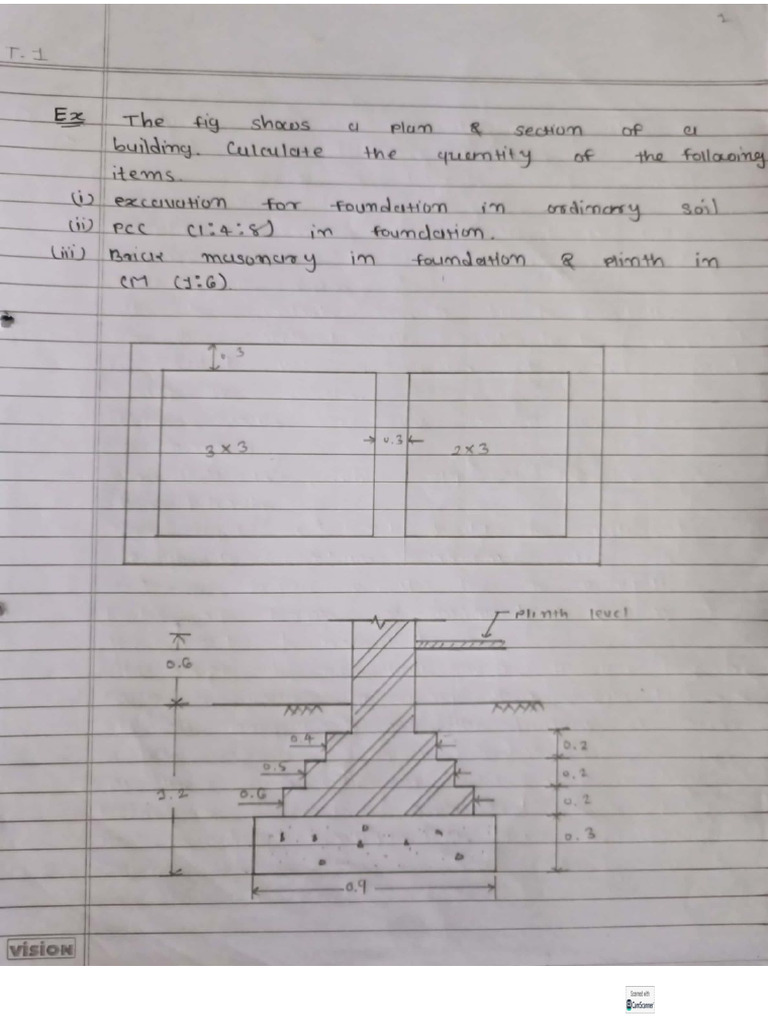 1
T. 1
Ex The fig shows a plan & section of a
building. Calculate the quantity of the following
items.
(i) excavation for foundation in ordinary soil
(ii) PCC (1:4:8) in foundation.
(iii) Brick masonary in foundation & plinth in
CM (1:6)
0.3
3 x 3
0.3
2 x 3
plinth level
0.6
0.4
0.2
0.5
0.2
1.2
0.6
0.2
0.3
0.9
VISION
Scanned with
CamScanner